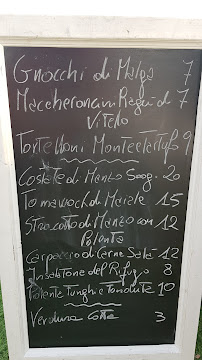 Gnocchi di Malga 7
Maccheroncini Ragù di 7
Vitello
Tortelloni Monteetartufo 9
Costate di Manzo Scog. 20
Tomawock di Maiale 15
Stracotto di Manzo con 12
Polenta
Carpaccio di Carne Salà 12
Insalatone del Rifugio 8
Polenta Funghi e Fonduta 10
Verdura Cotta 3